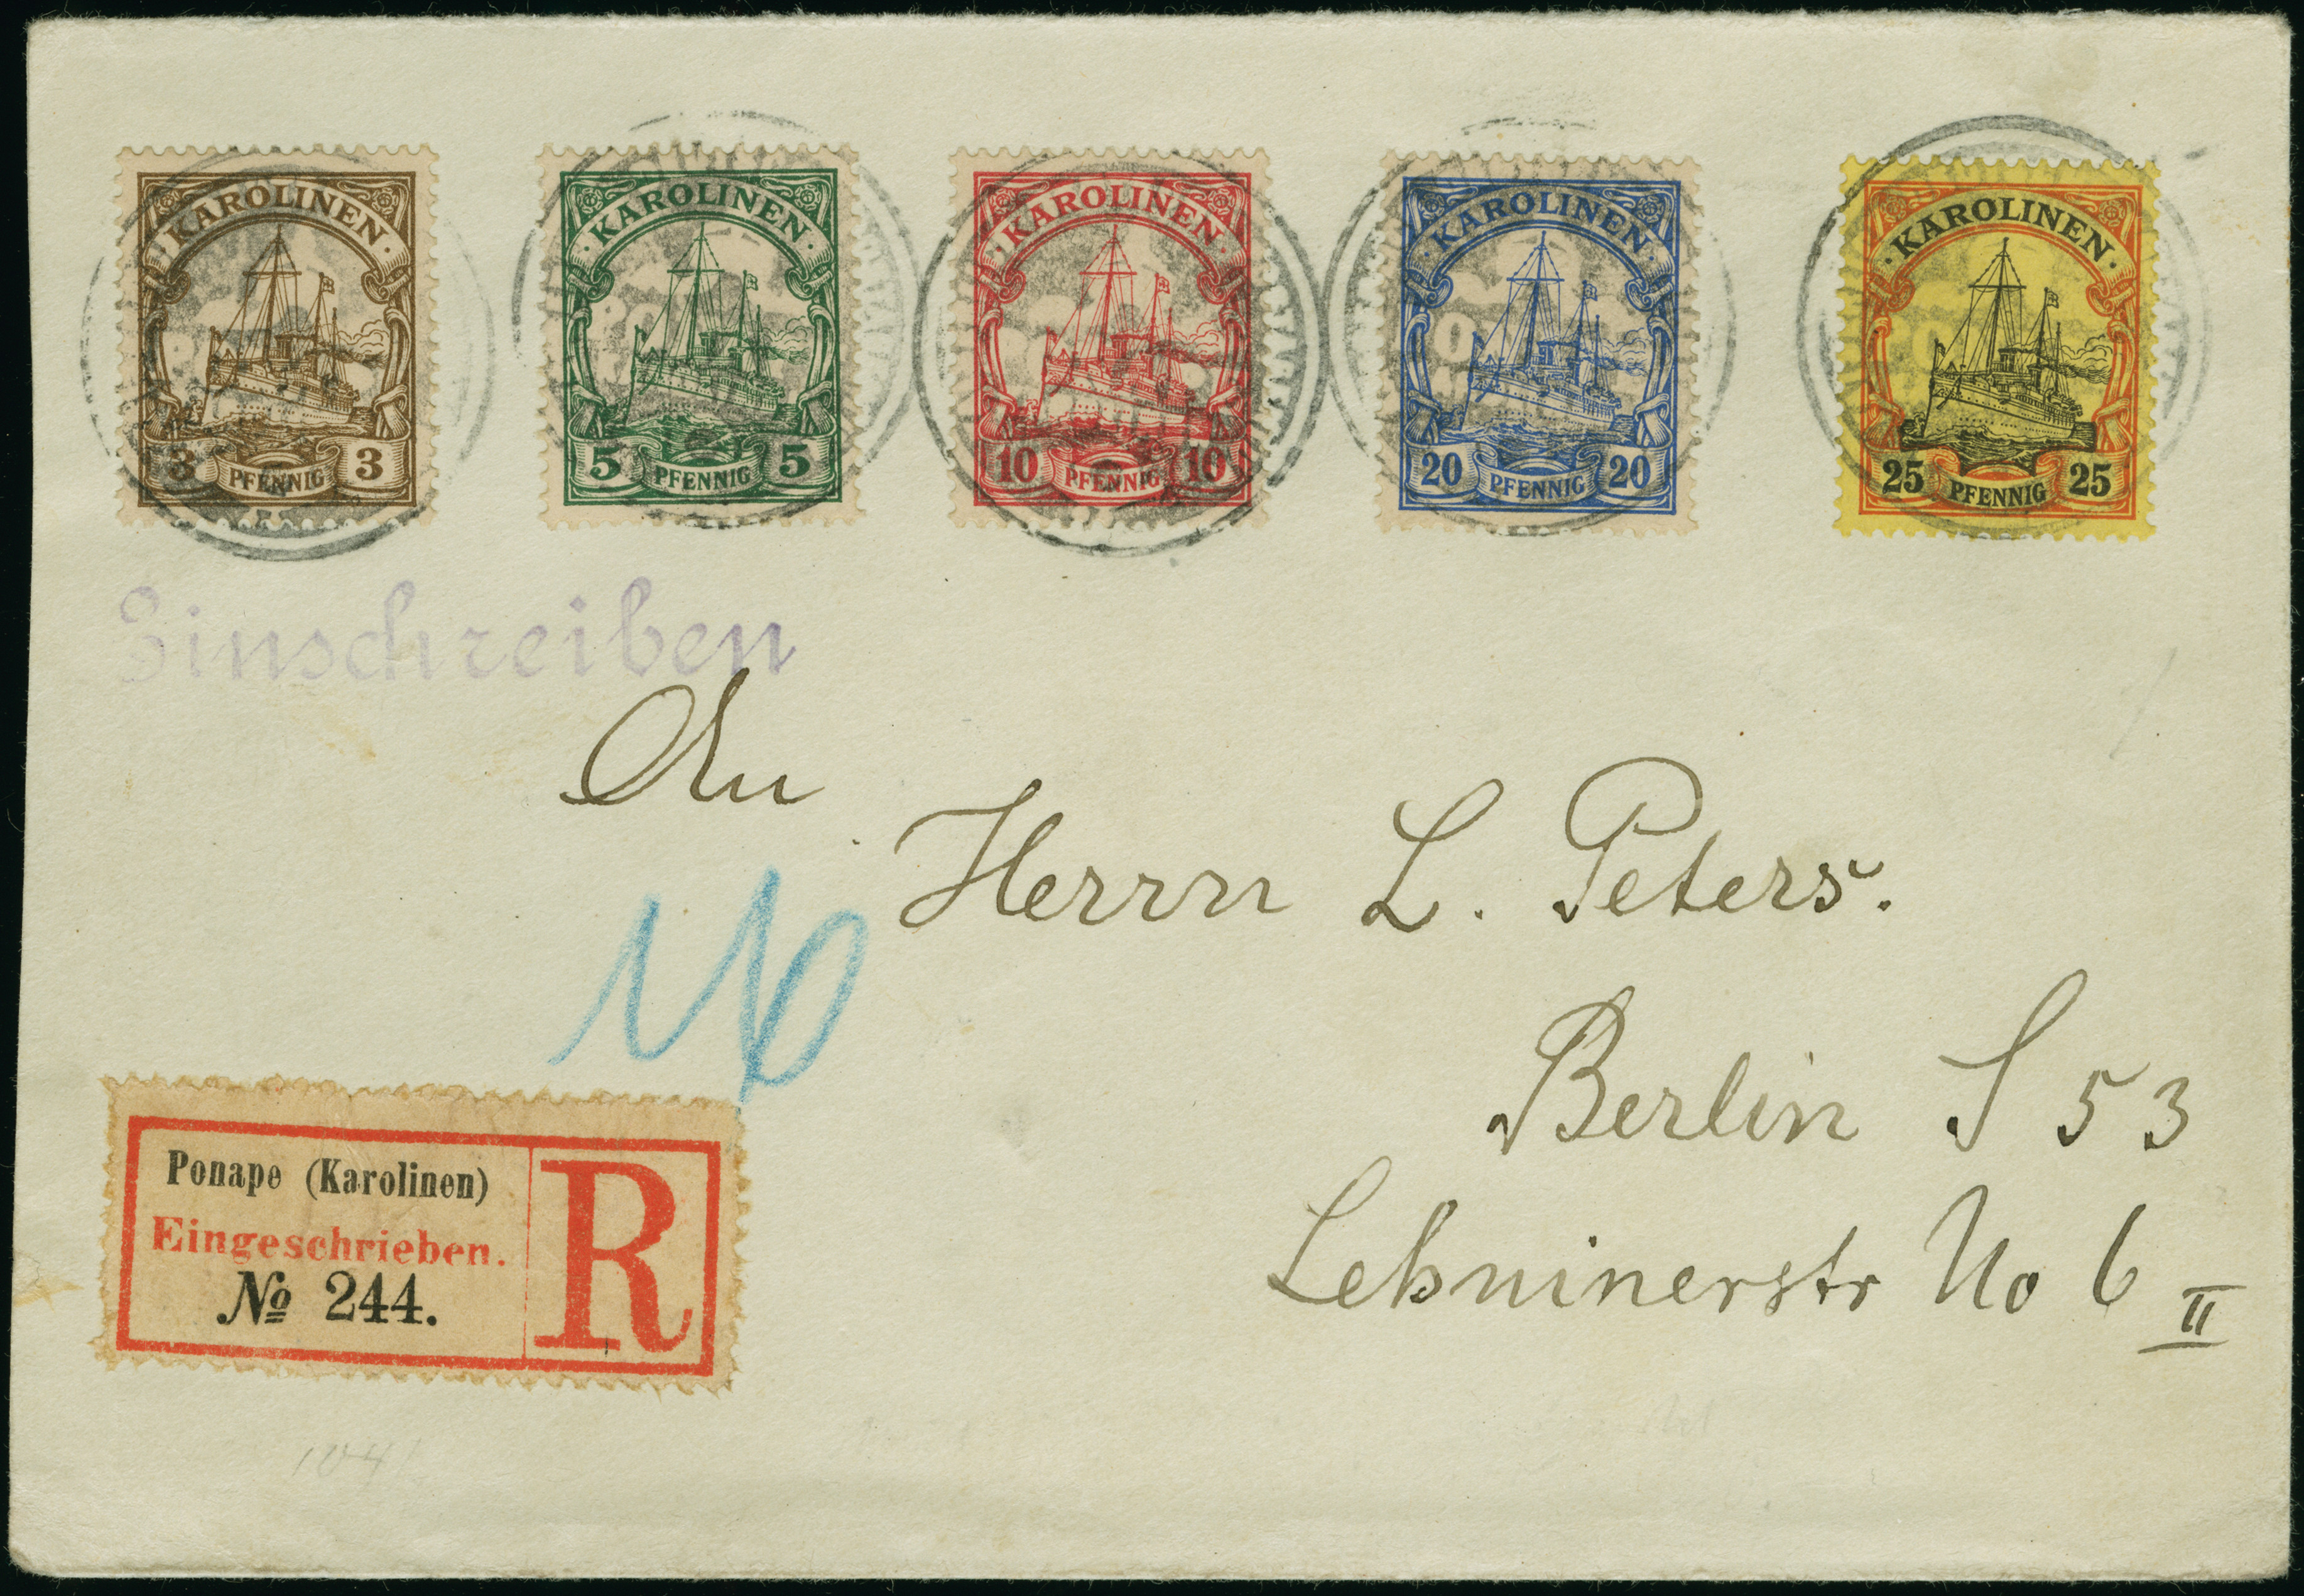 KAROLINEN
3 PFENNIG 3
KAROLINEN
5 PFENNIG 5
KAROLINEN
10 PFENNIG 10
KAROLINEN
20 PFENNIG 20
KAROLINEN
25 PFENNIG 25
Einschreiben
An
Herrn L. Peters.
Berlin S 53
Lehninerstr No 6 II
Ponape (Karolinen)
Eingeschrieben.
No 244.
R